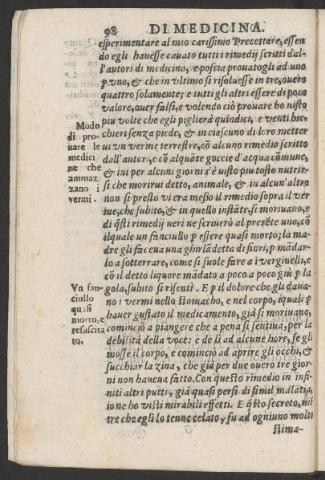 98 DI MEDICINA.
esperimentare al mio carissimo Precettore, essen
do egli hauesse cauato tutti i rimedij scritti dal-
l'autori di medicina, e posta prouatogli ad uno
p uno, & che in ultimo si risoluesse in tre, ouero
quattro solamente; e tutti gli altri essere di poco
valore, ouer falsi, e volendo ciò prouare ho uisto
piu volte che egli pigliera quindici, e venti bic-
chieri senza piede, & in ciascuno di loro metter
ui un verme terrestre, cō alcuno rimedio scritto
dall'autori, e cō alquāte goccie d'acqua cōmune,
& iui per alcuni giorni s'è uisto piu tosto nutrir-
si che morirui detto, animale, & in alcun'altro
non si presto vi era messo il rimedio sopra il ver
me, che subito, & in quello instāte, si moriuano, e
di q̄sti rimedij ueri ne scriuerò al presēte uno, cō
ilquale un fanciullo p essere quasi morto; la ma-
dre gli faceua una ghirlādetta di fiori, p mādar-
lo a sotterrare, come si suole fare a i vergiuelli, e
cō il detto liquore mādato a poco a poco giù p la
gola, subito si risentì. E p il dolore che gli daua-
no i vermi nello stomacho, e nel corpo, iquali p
hauer gustato il medicamento, già si moriuano,
cominciò a piangere che a pena si sentiua; per la
debilità della voce: e de lì ad alcune hore, se gli
mosse il corpo, e cominciò ad aprire gli occhi, &
succhiar la zina, che già per due ouero tre gior-
ni non haueua fatto. Con questo rimedio in infi-
niti altri putti, già quasi persi di simil malatia,
io ne ho visti mirabili effetti. E q̄sto secreto, mē
tre che egli lo tenne celato, fu ad ogniuno molto
stima-
Modo
di pro-
uare le
medici
ne che
ammaz
zano i
vermi.
Vn fan
ciullo
quasi
morto, e
resuscita
to.